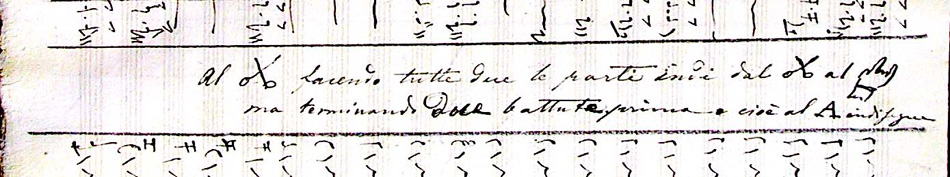 Al 𝄋 facendo tutte due le parti indi dal 𝄋 al
ma terminando due battute prima e cioè al A indi segue